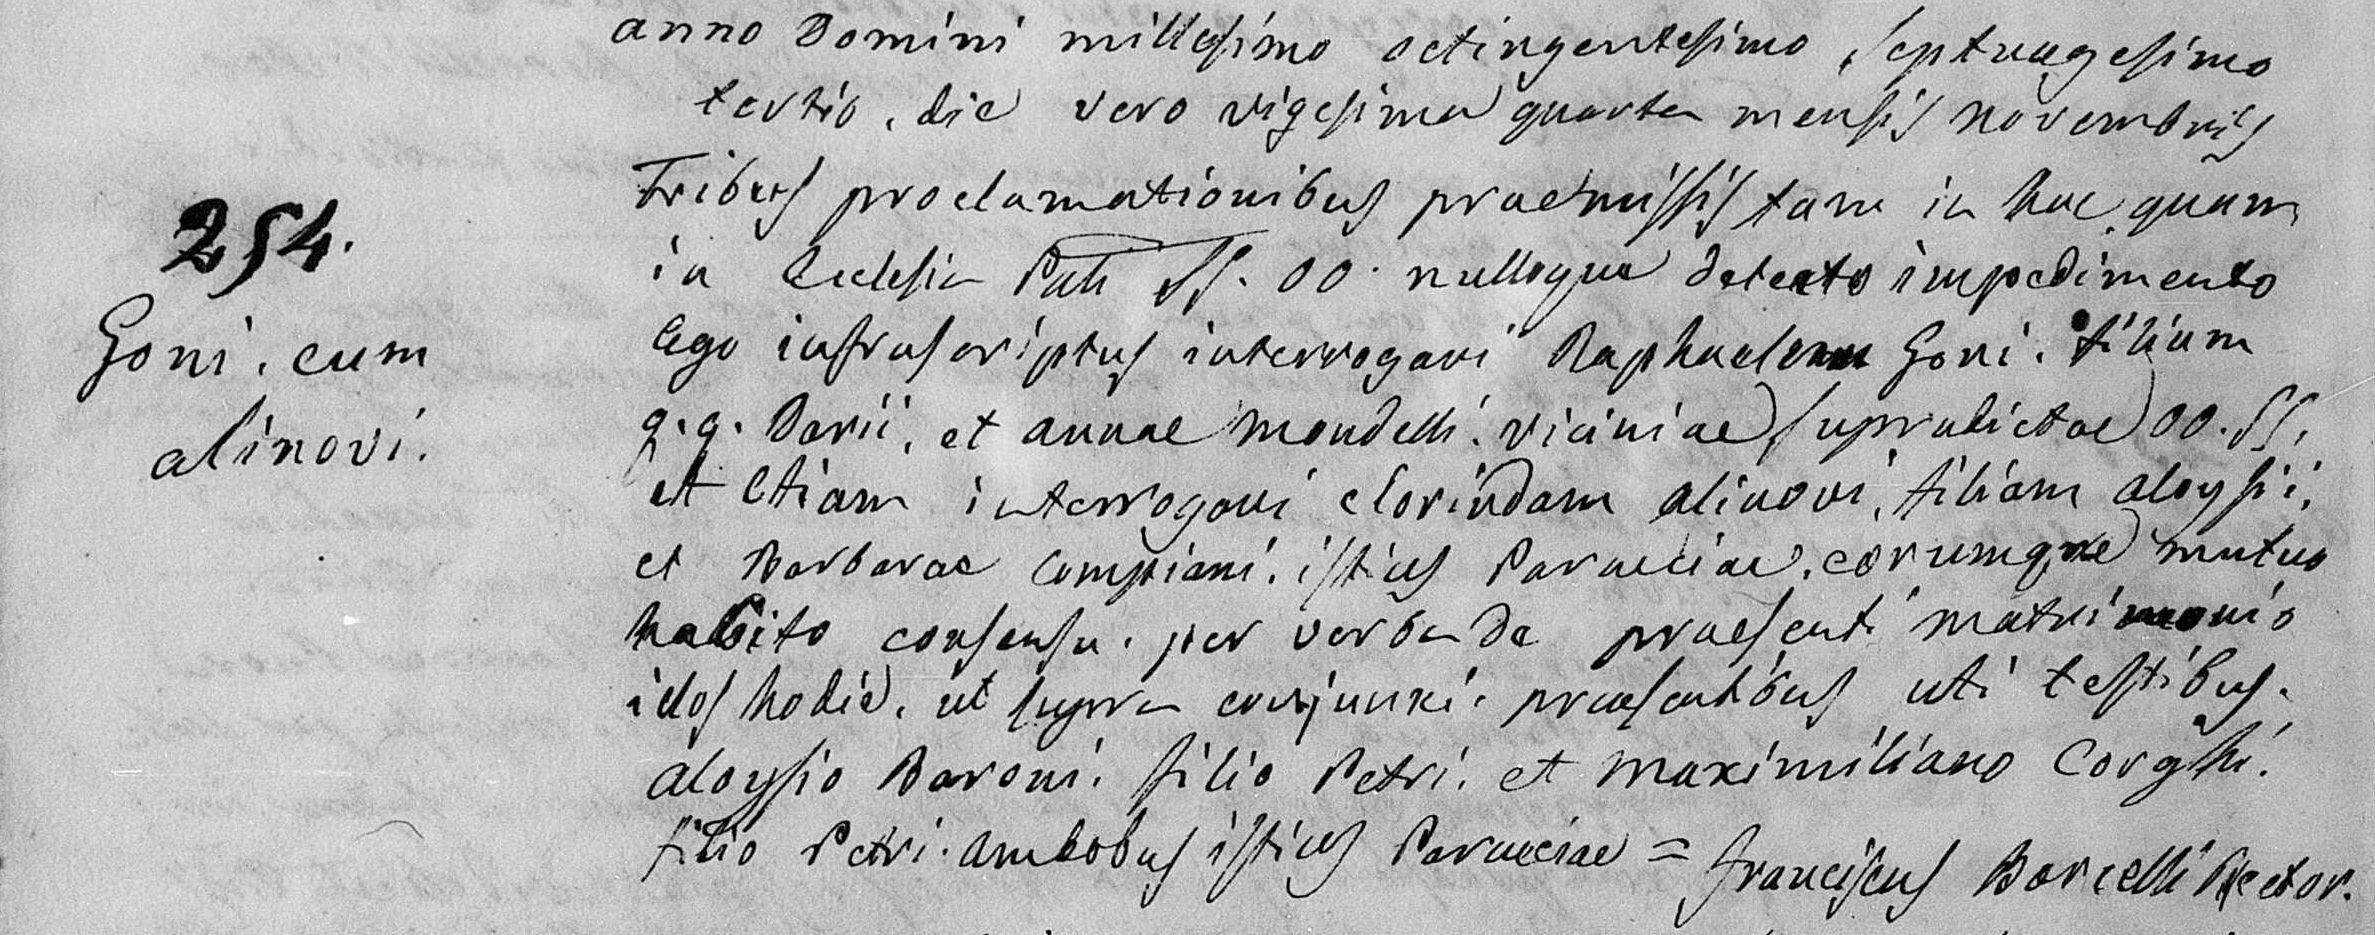 anno Domini millesimo octingentesimo septuagesimo
tertio, die vero vigesima quarta mensis novembris
Tribus proclamationibus praemissis tam in hac quam
in Ecclesia Pati SS. OO. nulloque detecto impedimento
Ego infrascriptus interrogavi Raphaelem Goni. filium
q. q. Darii, et annae Mondelli. viciniae supradictae OO. SS,
et Etiam interrogavi Clorindam alinovi, filiam aloysii,
et Barbarae Compiani. istius Paraeciae. eorumque mutuo
habito consensu. per verba de praesenti matrimonio
illos hodie, ut supra conjunxi. praesentibus uti testibus.
aloysio Baroni. filio Petri. et Maximiliano Corghi.
filio Petri. ambobus istius Paraeciae = Franciscus Borcelli Rector.
254.
Goni. cum
alinovi.